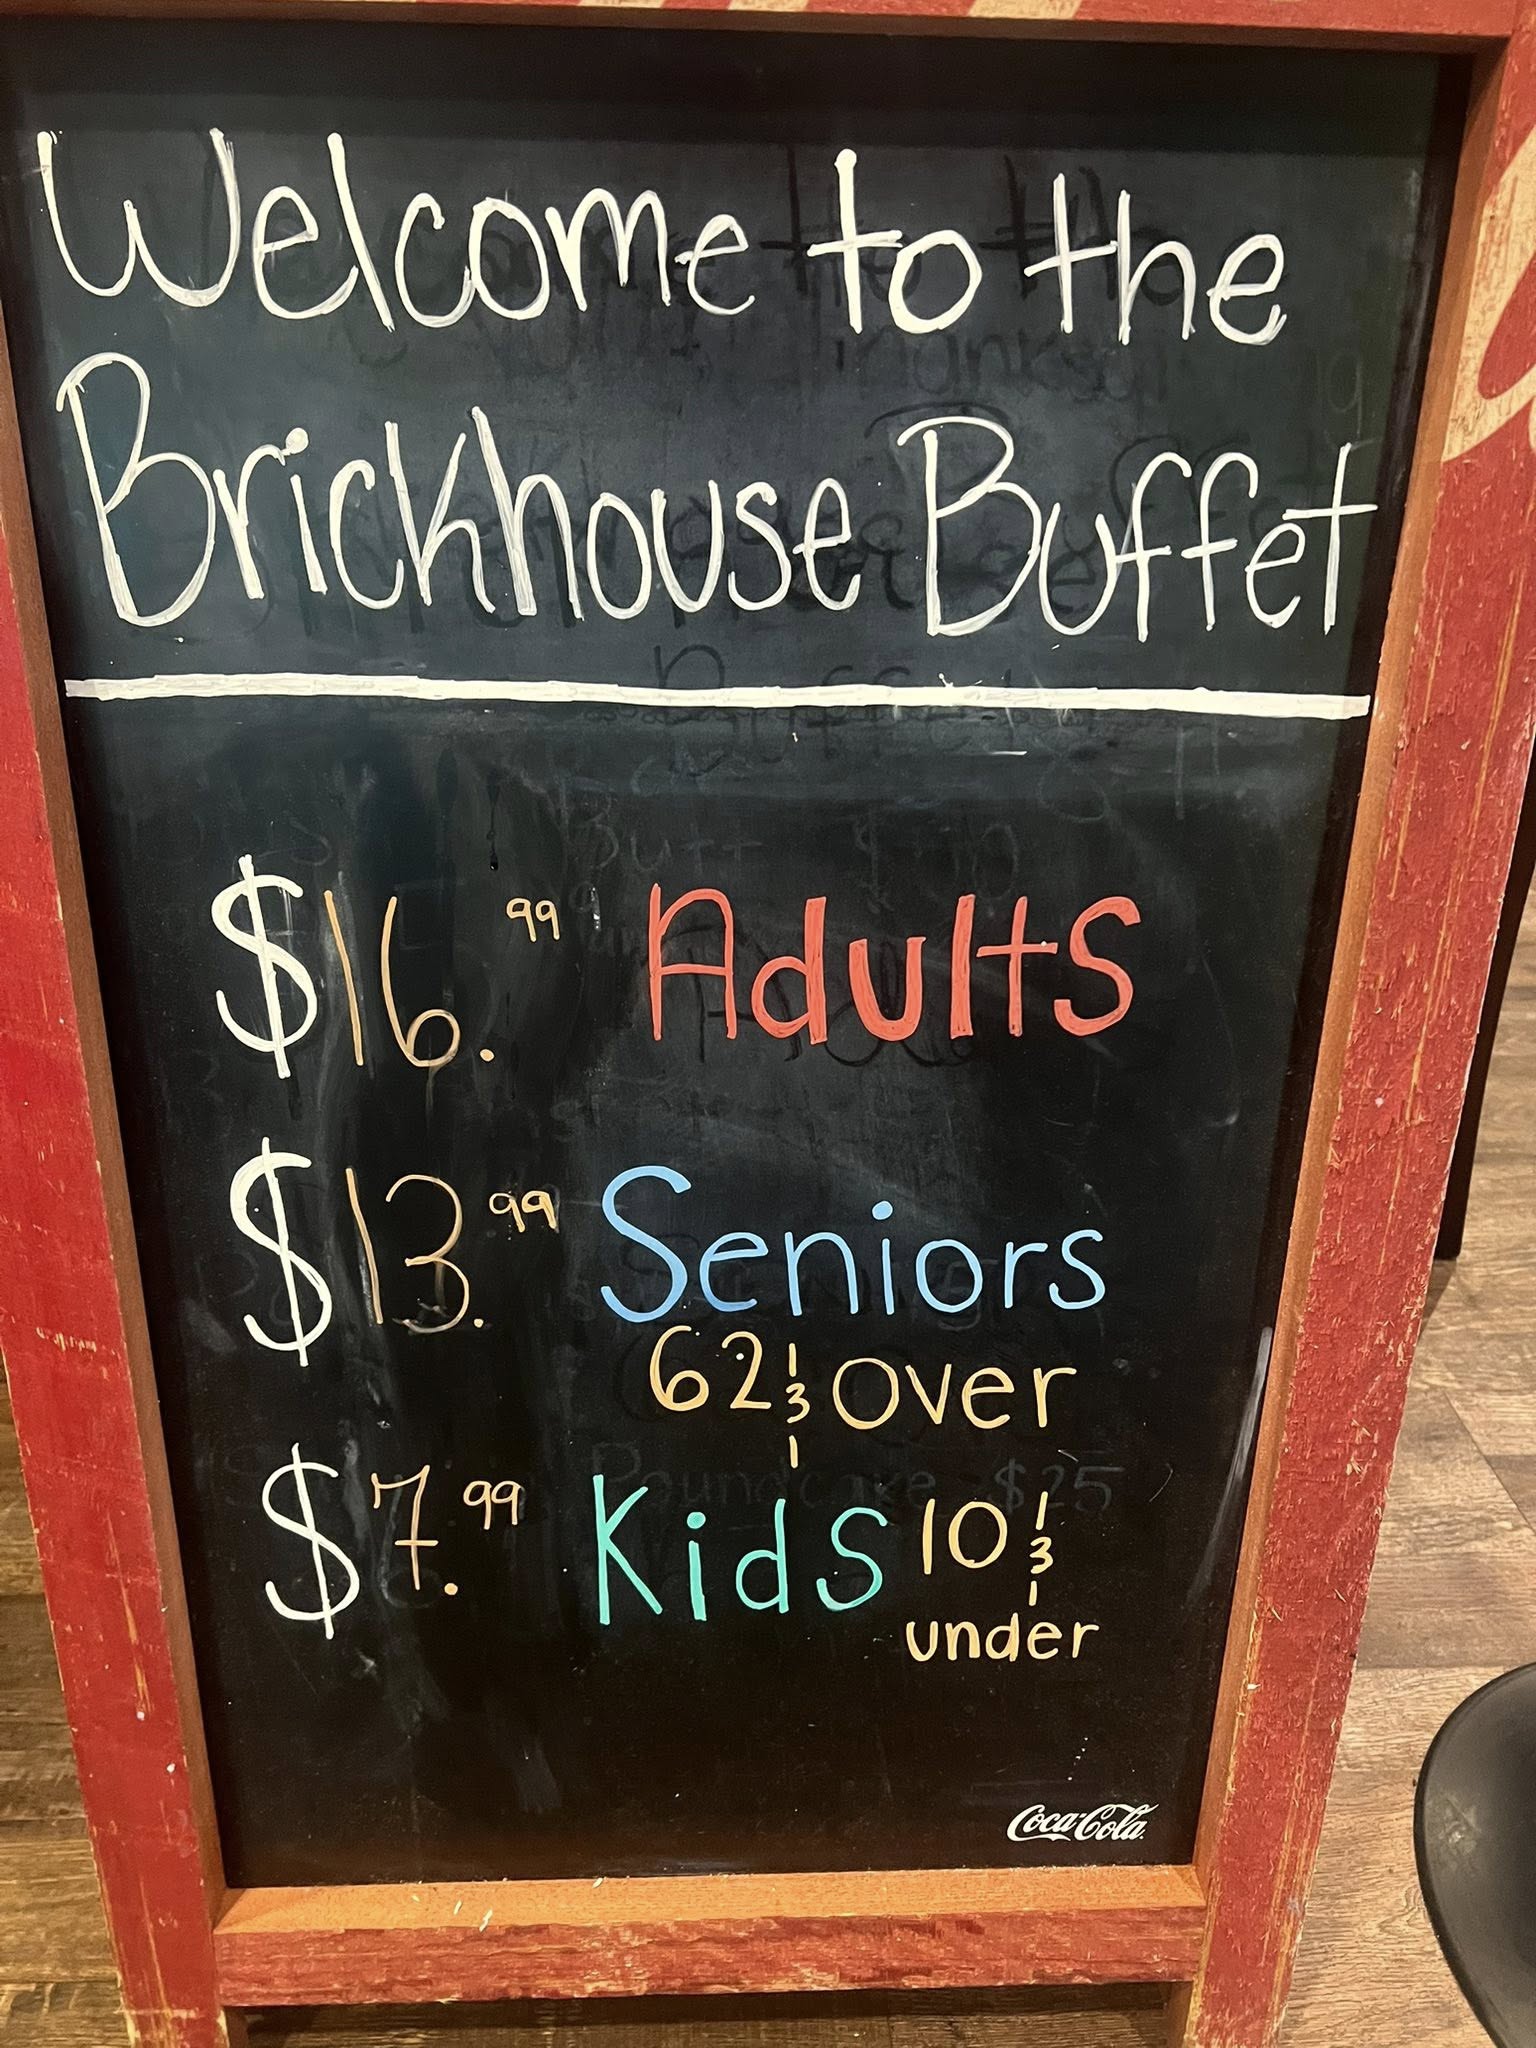 Welcome to the
Brickhouse Buffet
$16.99 Adults
$13.99 Seniors
62 & over
$7.99 Kids 10 &
under
Coca-Cola